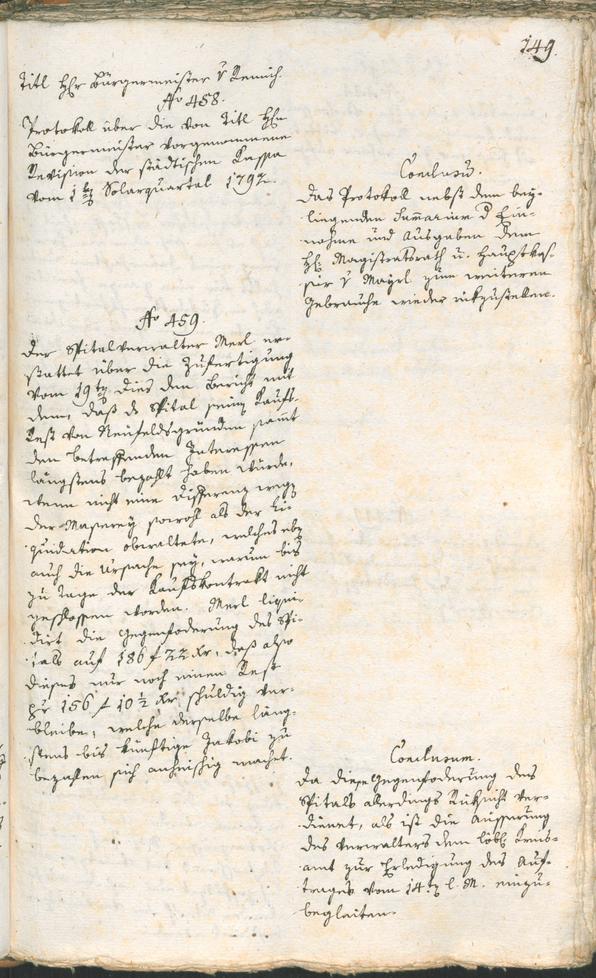 149.
Titl Hhr Bürgermeister v Remich.
No 458.
Protokoll über die von Titl Hhn
Bürgermeister vorgenommene
Revision der städtischen Kassa
vom 1 ten Solarquartal 1792.
Conclusu.
Das Protokoll nebst dem bey-
liegenden Summarium d Ein-
nahme und Ausgaben dem
Hh Magistratsrath u. Hauptkas-
sir v Mayrl zum weiteren
Gebrauche wieder rükzustellen.
No 459.
Der Spitalverwalter Merl er-
stattet über die Zufertigung
vom 19 ten dies den Bericht mit
dem, daß ds Spital seinen Kaufs-
rest von Neufeldsgründen sammt
den betreffenden Interessen
längstens bezahlt haben würde,
wenn nicht eine Differenz wegen
der Maserey sowohl als der Li-
quidation obwaltete, welches eben
auch die Ursache sey, warum bis
zu Tage der Kaufskontrakt nicht
geschlossen worden. Merl liqui-
dirt die Gegenfoderung des Spi-
tals auf 186 f 22 kr, daß also
dieses nur noch einen Rest
pr 156 f 10 ½ kr schuldig ver-
bleibe, welche derselbe läng-
stens bis künftige Jakobi zu
bezahlen sich anheischig machet.
Conclusum.
Da diese Gegenfoderung des
Spitals allerdings Rüksicht ver-
dienet, als ist die Äusserung
des Verwalters dem löbl Kreis-
amt zur Erledigung des Auf-
trages vom 14. ten l. M. einzu-
begleiten.